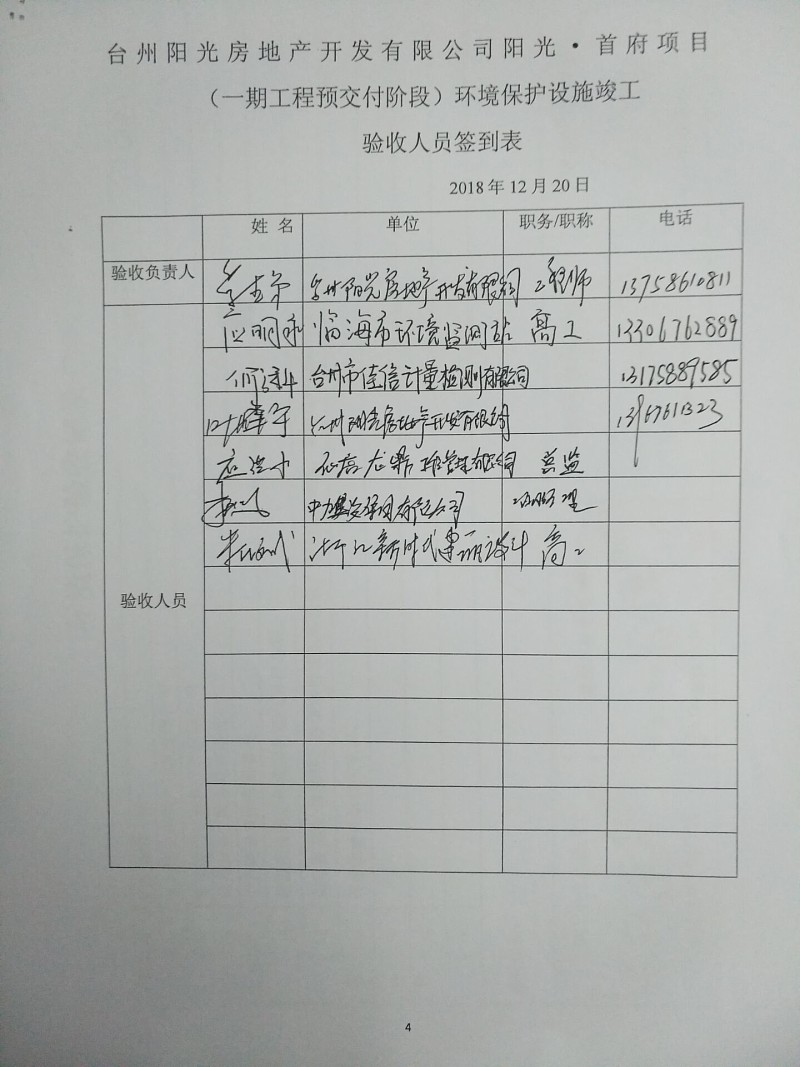 台州阳光房地产开发有限公司阳光·首府项目
（一期工程预交付阶段）环境保护设施竣工
验收人员签到表
2018年12月20日
姓 名 单位 职务/职称 电话
验收负责人 台州阳光房地产开发有限公司 工程师 13758610811
应明 临海市环境监测站 高工 13306762889
台州市佳信计量检测有限公司 13175889585
台州阳光房地产开发有限公司
应 管理有限公司 总监
有限公司 项目经理
浙江新时代 设计 高工
验收人员
4